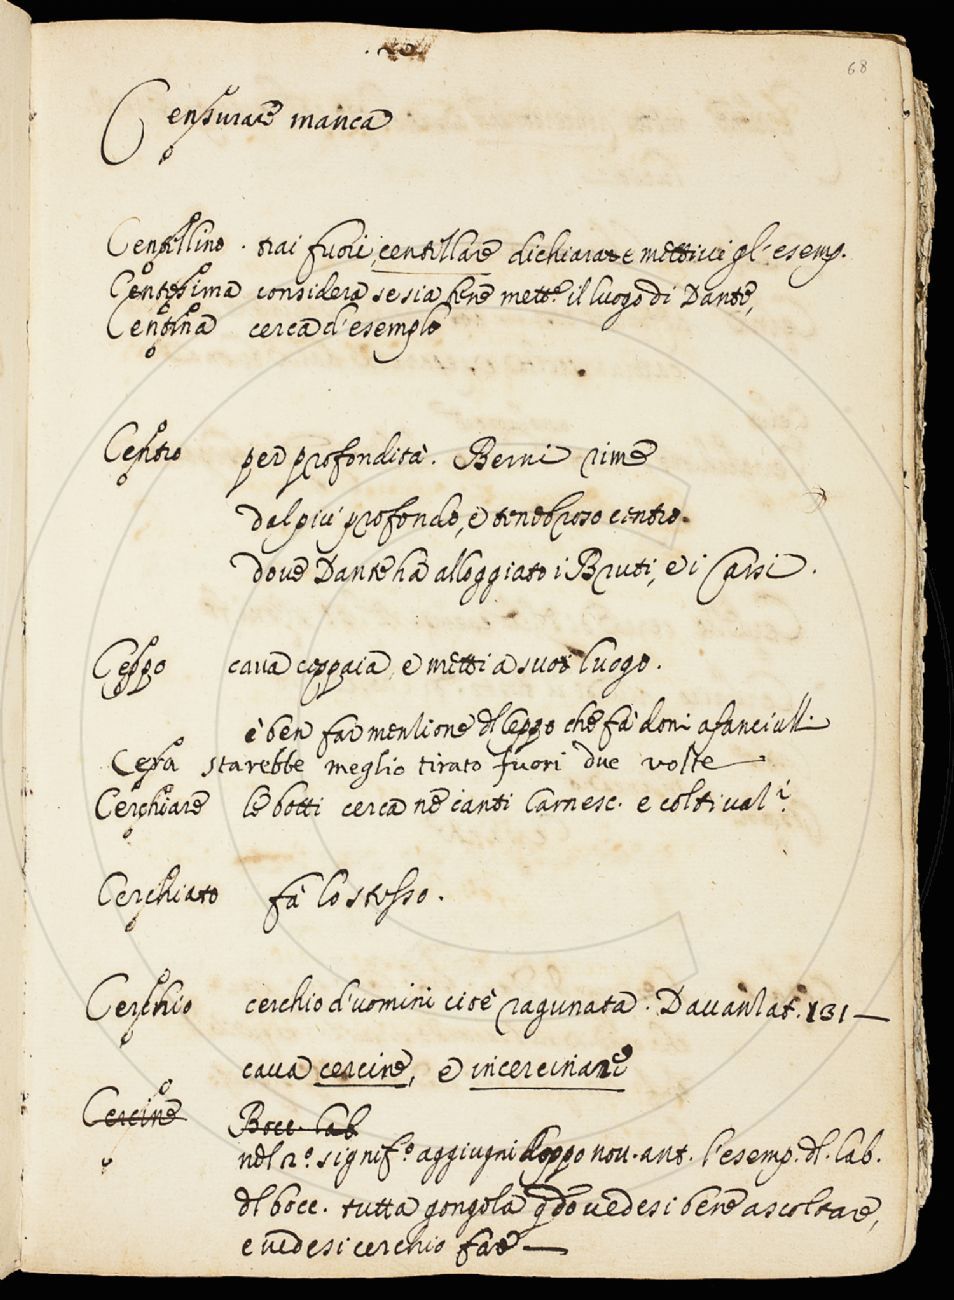 68
Censurare manca
Centellino. trai fuori, centillare dichiarare e mettivi gl'esemp.
Centesima considera se sia bene mett.e il luogo di Dante,
Centina cerca d'esemplo
Centro per profondità. Berni rime
dal più profondo, e tenebroso centro.
dove Dante ha alloggiato i Bruti, e i Cassi.
Ceppo cava ceppaia, e metti a suo luogo.
è ben far menzione dl ceppo che fa doni a fanciulli
Cera starebbe meglio tirato fuori due volte
Cerchiare le botti cerca ne canti Carnesc. e coltival.i
Cerchiato fa lo stesso.
Cerchio cerchio d'uomini cioè ragunata. Davanzat. 131
cava cercine, e incercinare
Cercine Bocc. lab
nel 2.o signif.o aggiugni doppo nov. ant. l'esemp. dl. lab.
dl bocc. tutta gongola qdo vedesi bene ascoltare,
e vedesi cerchio fare